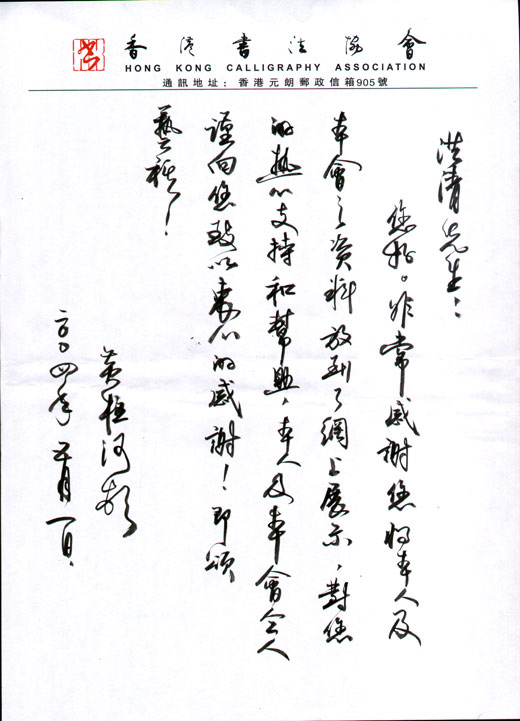 香港書法協會
HONG KONG CALLIGRAPHY ASSOCIATION
通訊地址：香港元朗郵政信箱905號
洪清先生：
您好。非常感謝您將本人及
本會之資料放到了網上展示，對您
的熱心支持和幫助，本人及本會仝人
謹向您致以衷心的感謝！即頌
藝祺！
黃恆河
二〇〇四年五月一日